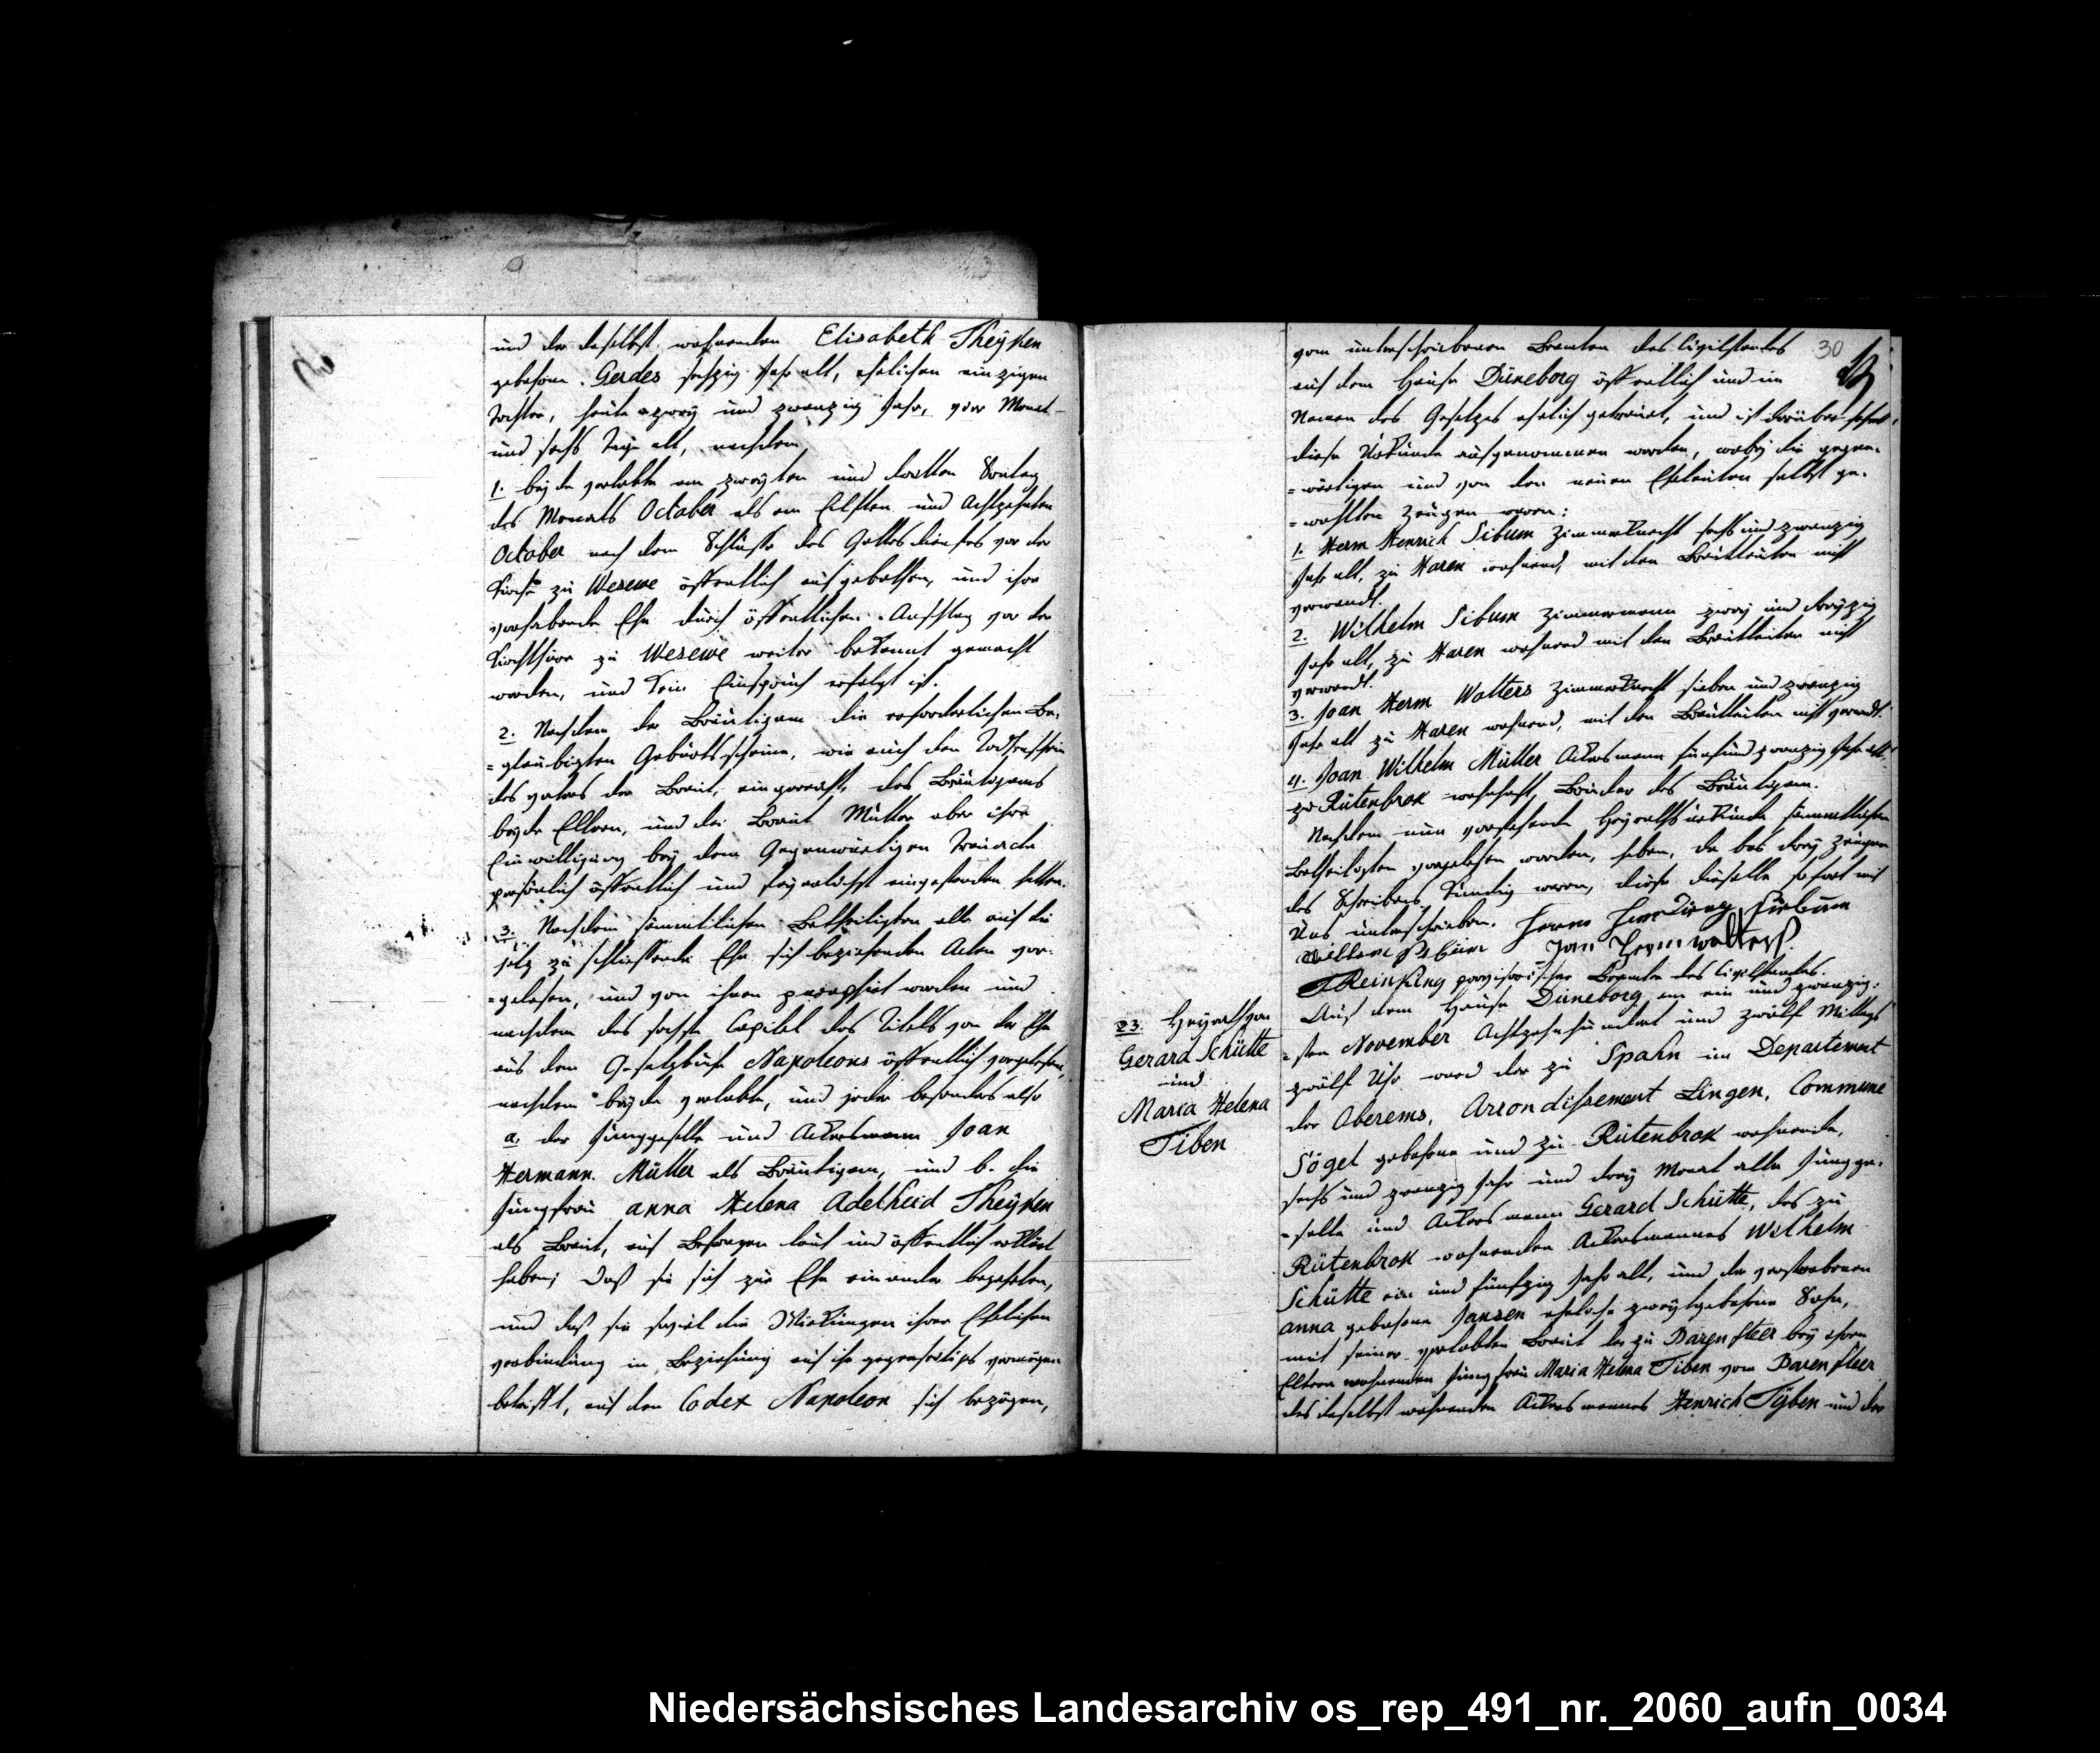 und der daselbst wohnenden Elisabeth Theyken
gebohrne Gerdes sechzig Jahr alt, ehelichen einzigen
Tochter, heute zwey und zwanzig Jahr, vier Monat
und sechs Tage alt, nachdem
1. beyde verlobte am zweyten und dritten Sontag
des Monats October als am Eilften und Achtzehnten
October nach dem Schlusse des Gottesdienstes vor der
Kirche zu Wesewe öffentlich aufgebothen, und ihre
vorhabende Ehe durch öffentlichen Anschlag vor der
Kirchthüre zu Wesewe weiter bekannt gemacht
worden, und kein Einspruch erfolgt ist.
2. Nachdem der Bräutigam die erforderlichen Be-
=glaubigten Geburtsscheine, wie auch den Todtenschein
des vaters der Braut, eingereicht, des Bräutigams
beyde Eltern, und der Braut Mutter aber ihre
Einwilligung bey dem Gegenwärtigen
persönlich öffentlich und feyerlichst eingestanden hatten.
3. Nachdem sämmtlichen Betheiligten alle auf die
jetz zu schliessende Ehe sich beziehenden Acten vor-
=gelesen, und von ihnen paraphirt worden und
nachdem das sechste Capitel des Titels von der Ehe
aus dem Gesetzbuche Napoleons öffentlich vorgelesen,
nachdem beyde verlobte, und jeder besonders also
a. der Junggeselle und Ackersmann Joan
Hermann Müller als Bräutigam, und b. die
Jungfrau anna Helena Adelheid Theyken
als Braut, auf Befragen laut und öffentlich erklärt
haben; daß sie sich zur Ehe einander begehrten,
und daß sie soviel die Wirkungen ihrer Ehelichen
verbindung in Beziehung auf ihr gegenseitiges vermögen
betrifft, auf den Codex Napoleon sich bezögen,
30
vom unterschriebenen Beamten des Civilstandes
auf dem Hause Düneborg öffentlich und im
Namen des Gesetzes ehelich getrauet, und ist darüber sofort
diese Urkunde aufgenommen worden, wobey die gegen-
=wärtigen und von den neuen Eheleuten selbst ge-
=wählten Zeugen waren:
1. Herm Henrich Sibum Zimmerknecht sechs und zwanzig
Jahr alt, zu Haren wohnend, mit den Brautleuten nicht
verwandt.
2. Wilhelm Sibum Zimmermann zwey und dreyzig
Jahr alt, zu Haren wohnend mit den Brautleuten nicht
verwandt.
3. Joan Herm Wolters Zimmerknecht sieben und zwanzig
Jahr alt zu Haren wohnend, mit den Brautleuten nicht verwandt.
4. Joan Wilhelm Müller Ackersmann fünfundzwanzig Jahr alt
zu Rütenbrok wohnhaft, Bruder des Bräutigam.
Nachdem nun vorstehende Heyrathsurkunde sämmtlichen
Betheiligten vorgelesen worden, haben, da bes drey Zeugen
des Schreibens kundig waren, diese dieselbe sofort mit
Uns unterschrieben. Herm Hendrieg Siebum
Willem Siebum Jan Herm wolterß.
Reinking provisorischer Beamte des Civilstandes.
23. Heyrath von
Gerard Schütte
und
Maria Helena
Tiben
Auf dem Hause Düneborg am ein und zwanzig-
=sten November Achtzehnhundert und zwölf Mittags
zwölf Uhr ward der zu Spahn im Departement
der Oberems, Arrondissement Lingen, Commune
Sögel gebohrne und zu Rütenbrok wohnende,
sechs und zwanzig Jahr und drey Monat alte Jungge-
=selle und Ackersmann Gerard Schütte, des zu
Rütenbrok wohnenden Ackersmannes Wilhelm
Schütte ein und fünfzig Jahr alt, und der verstorbenen
anna gebohrne Jansen eheliche zweytgebohrne Sohn,
mit seiner verlobten Braut der zu Darenfleer bey ihren
Eltern wohnenden Jungfrau Maria Helena Tiben vom Darenfleer
des daselbst wohnenden Ackersmannes Henrich Tyben und der
Niedersächsisches Landesarchiv os_rep_491_nr._2060_aufn_0034